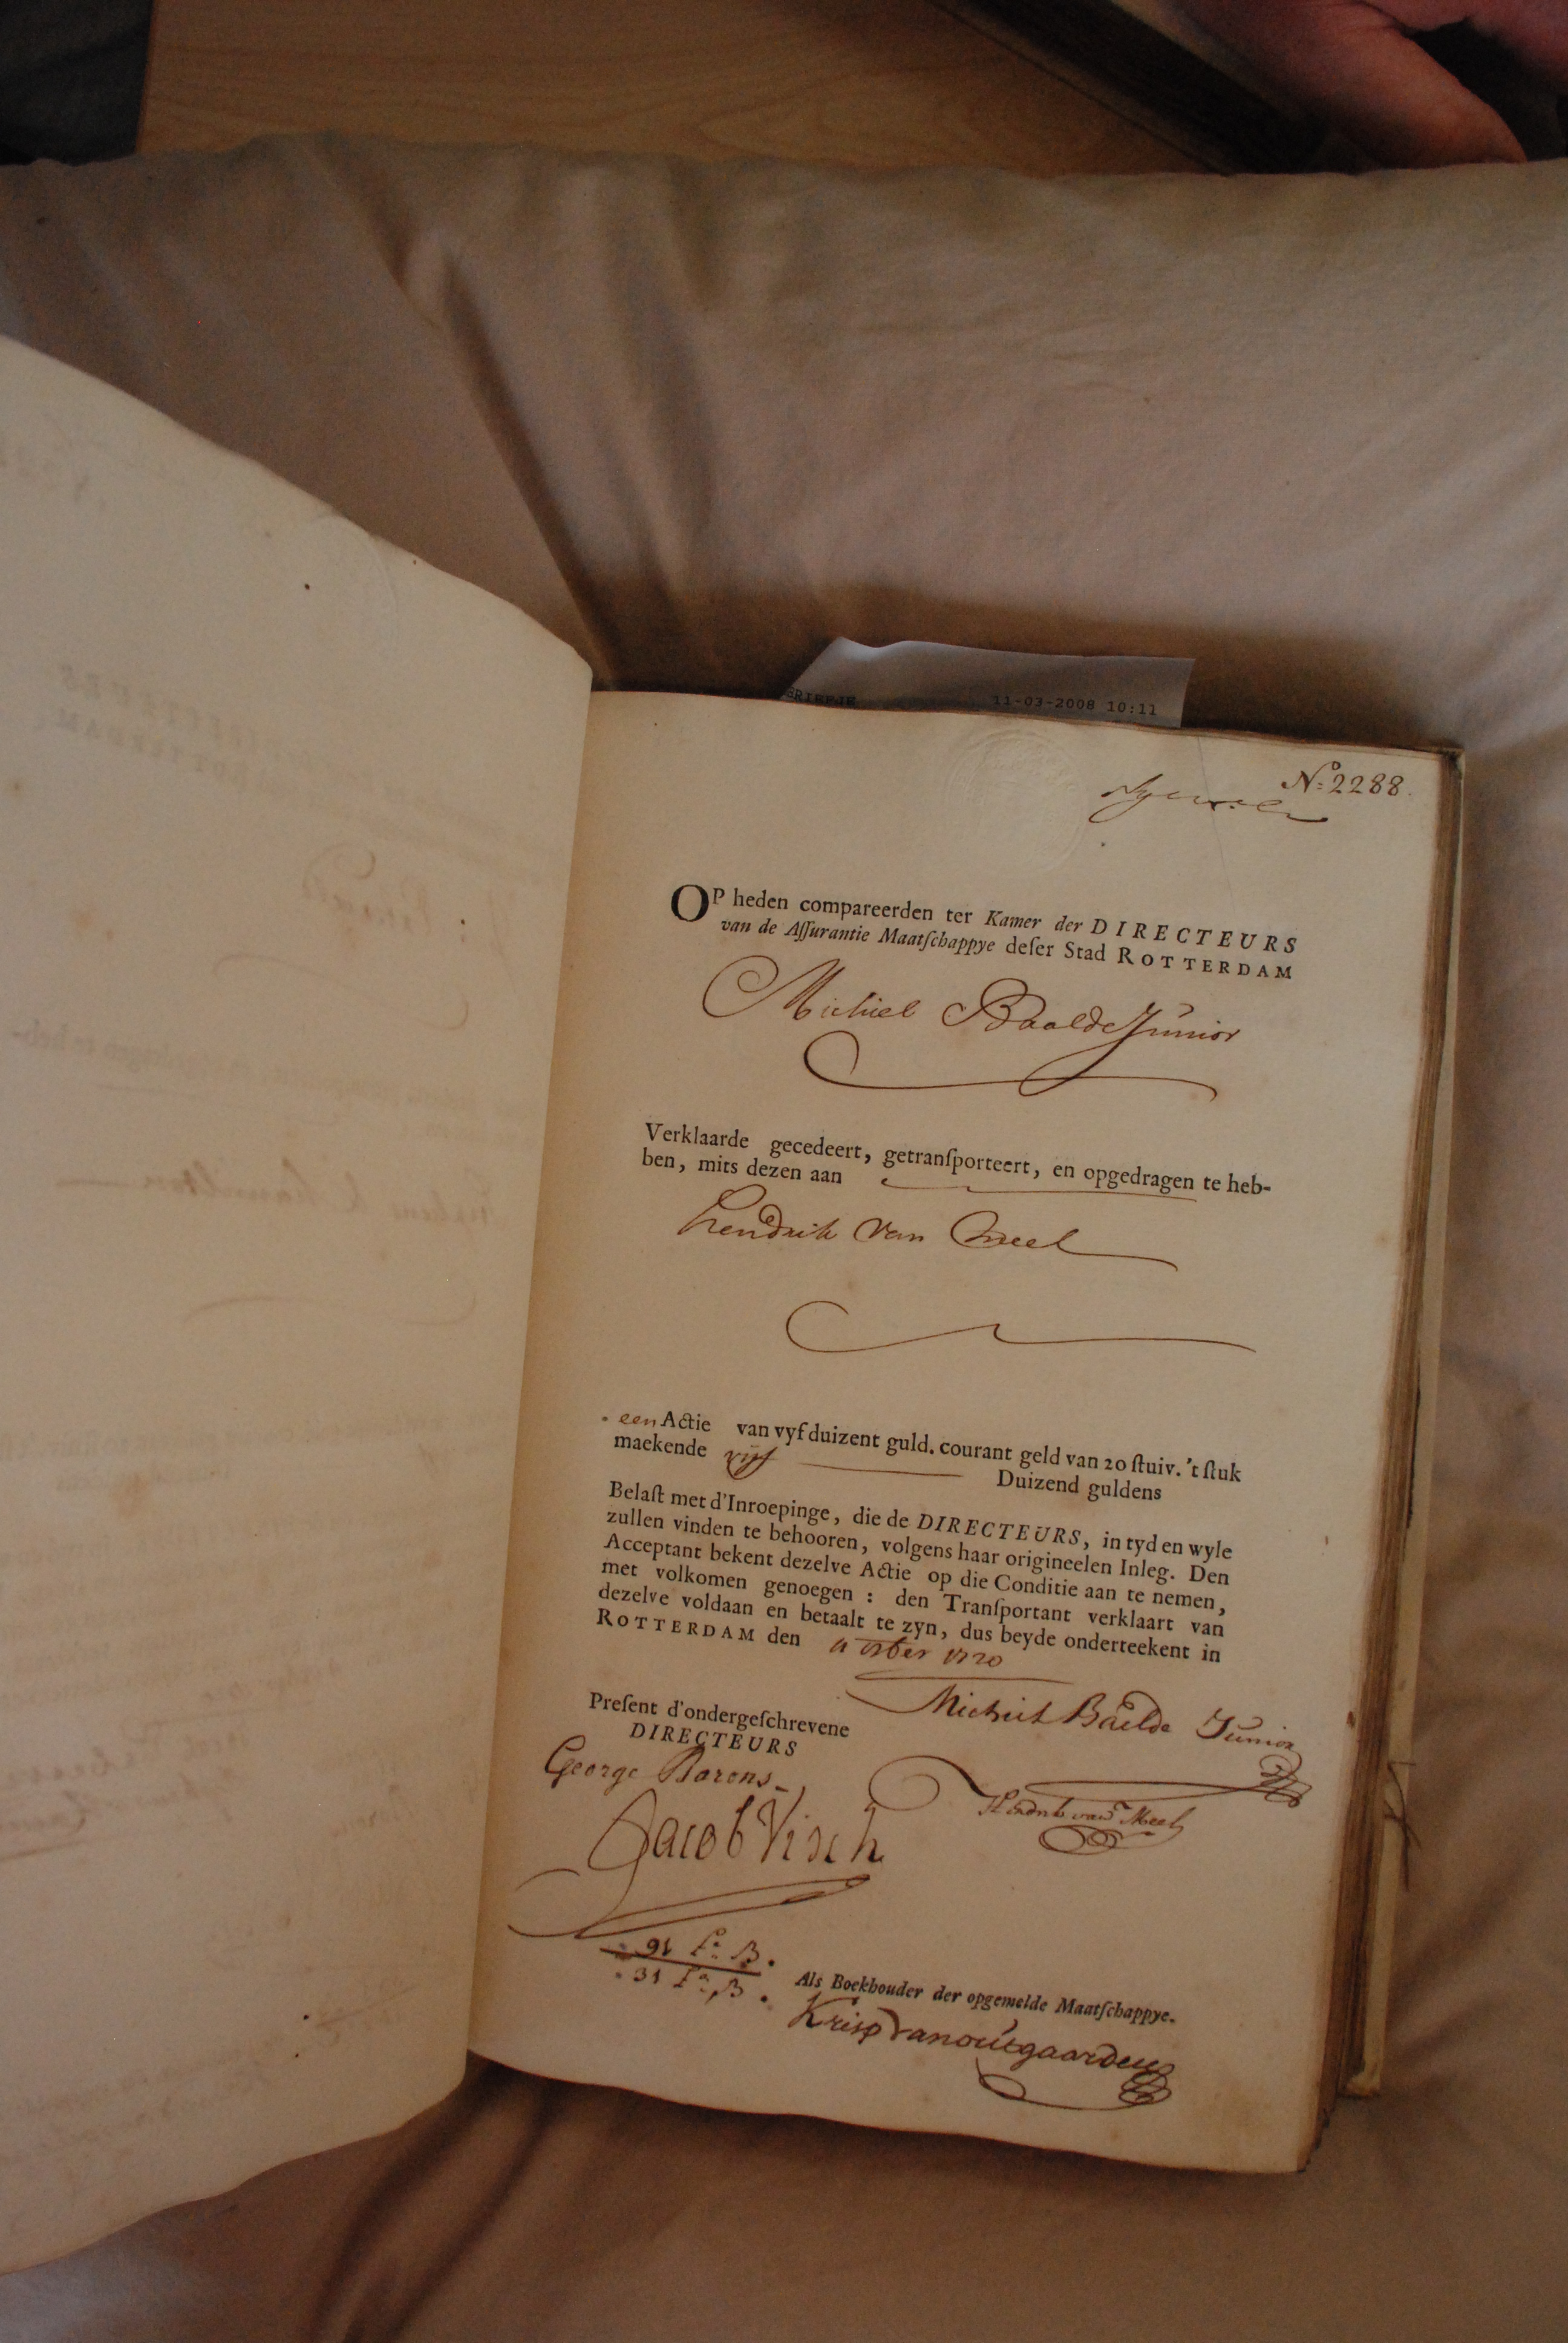 11-03-2008 10:11
No 2288.
OP heden compareerden ter Kamer der DIRECTEURS
van de Aſſurantie Maatſchappye deſer Stad ROTTERDAM
Michiel Baalde Junior
Verklaarde gecedeert, getranſporteert, en opgedragen te heb-
ben, mits dezen aan
Hendrik van Meel
een Actie van vyf duizent guld. courant geld van 20 ſtuiv. 't ſtuk
maekende vijf Duizend guldens
Belaſt met d'Inroepinge, die de DIRECTEURS, in tyd en wyle
zullen vinden te behooren, volgens haar origineelen Inleg. Den
Acceptant bekent dezelve Actie op die Conditie aan te nemen,
met volkomen genoegen : den Tranſportant verklaart van
dezelve voldaan en betaalt te zyn, dus beyde onderteekent in
ROTTERDAM den 1720
Michiel Baelde Junior
Preſent d'ondergeſchrevene
DIRECTEURS
George Barons
Hendrik van Meel
Jacob Visch
91 fo B.
31 fo B.
Als Boekhouder der opgemelde Maatſchappye.
Krisp Vanousgaarden